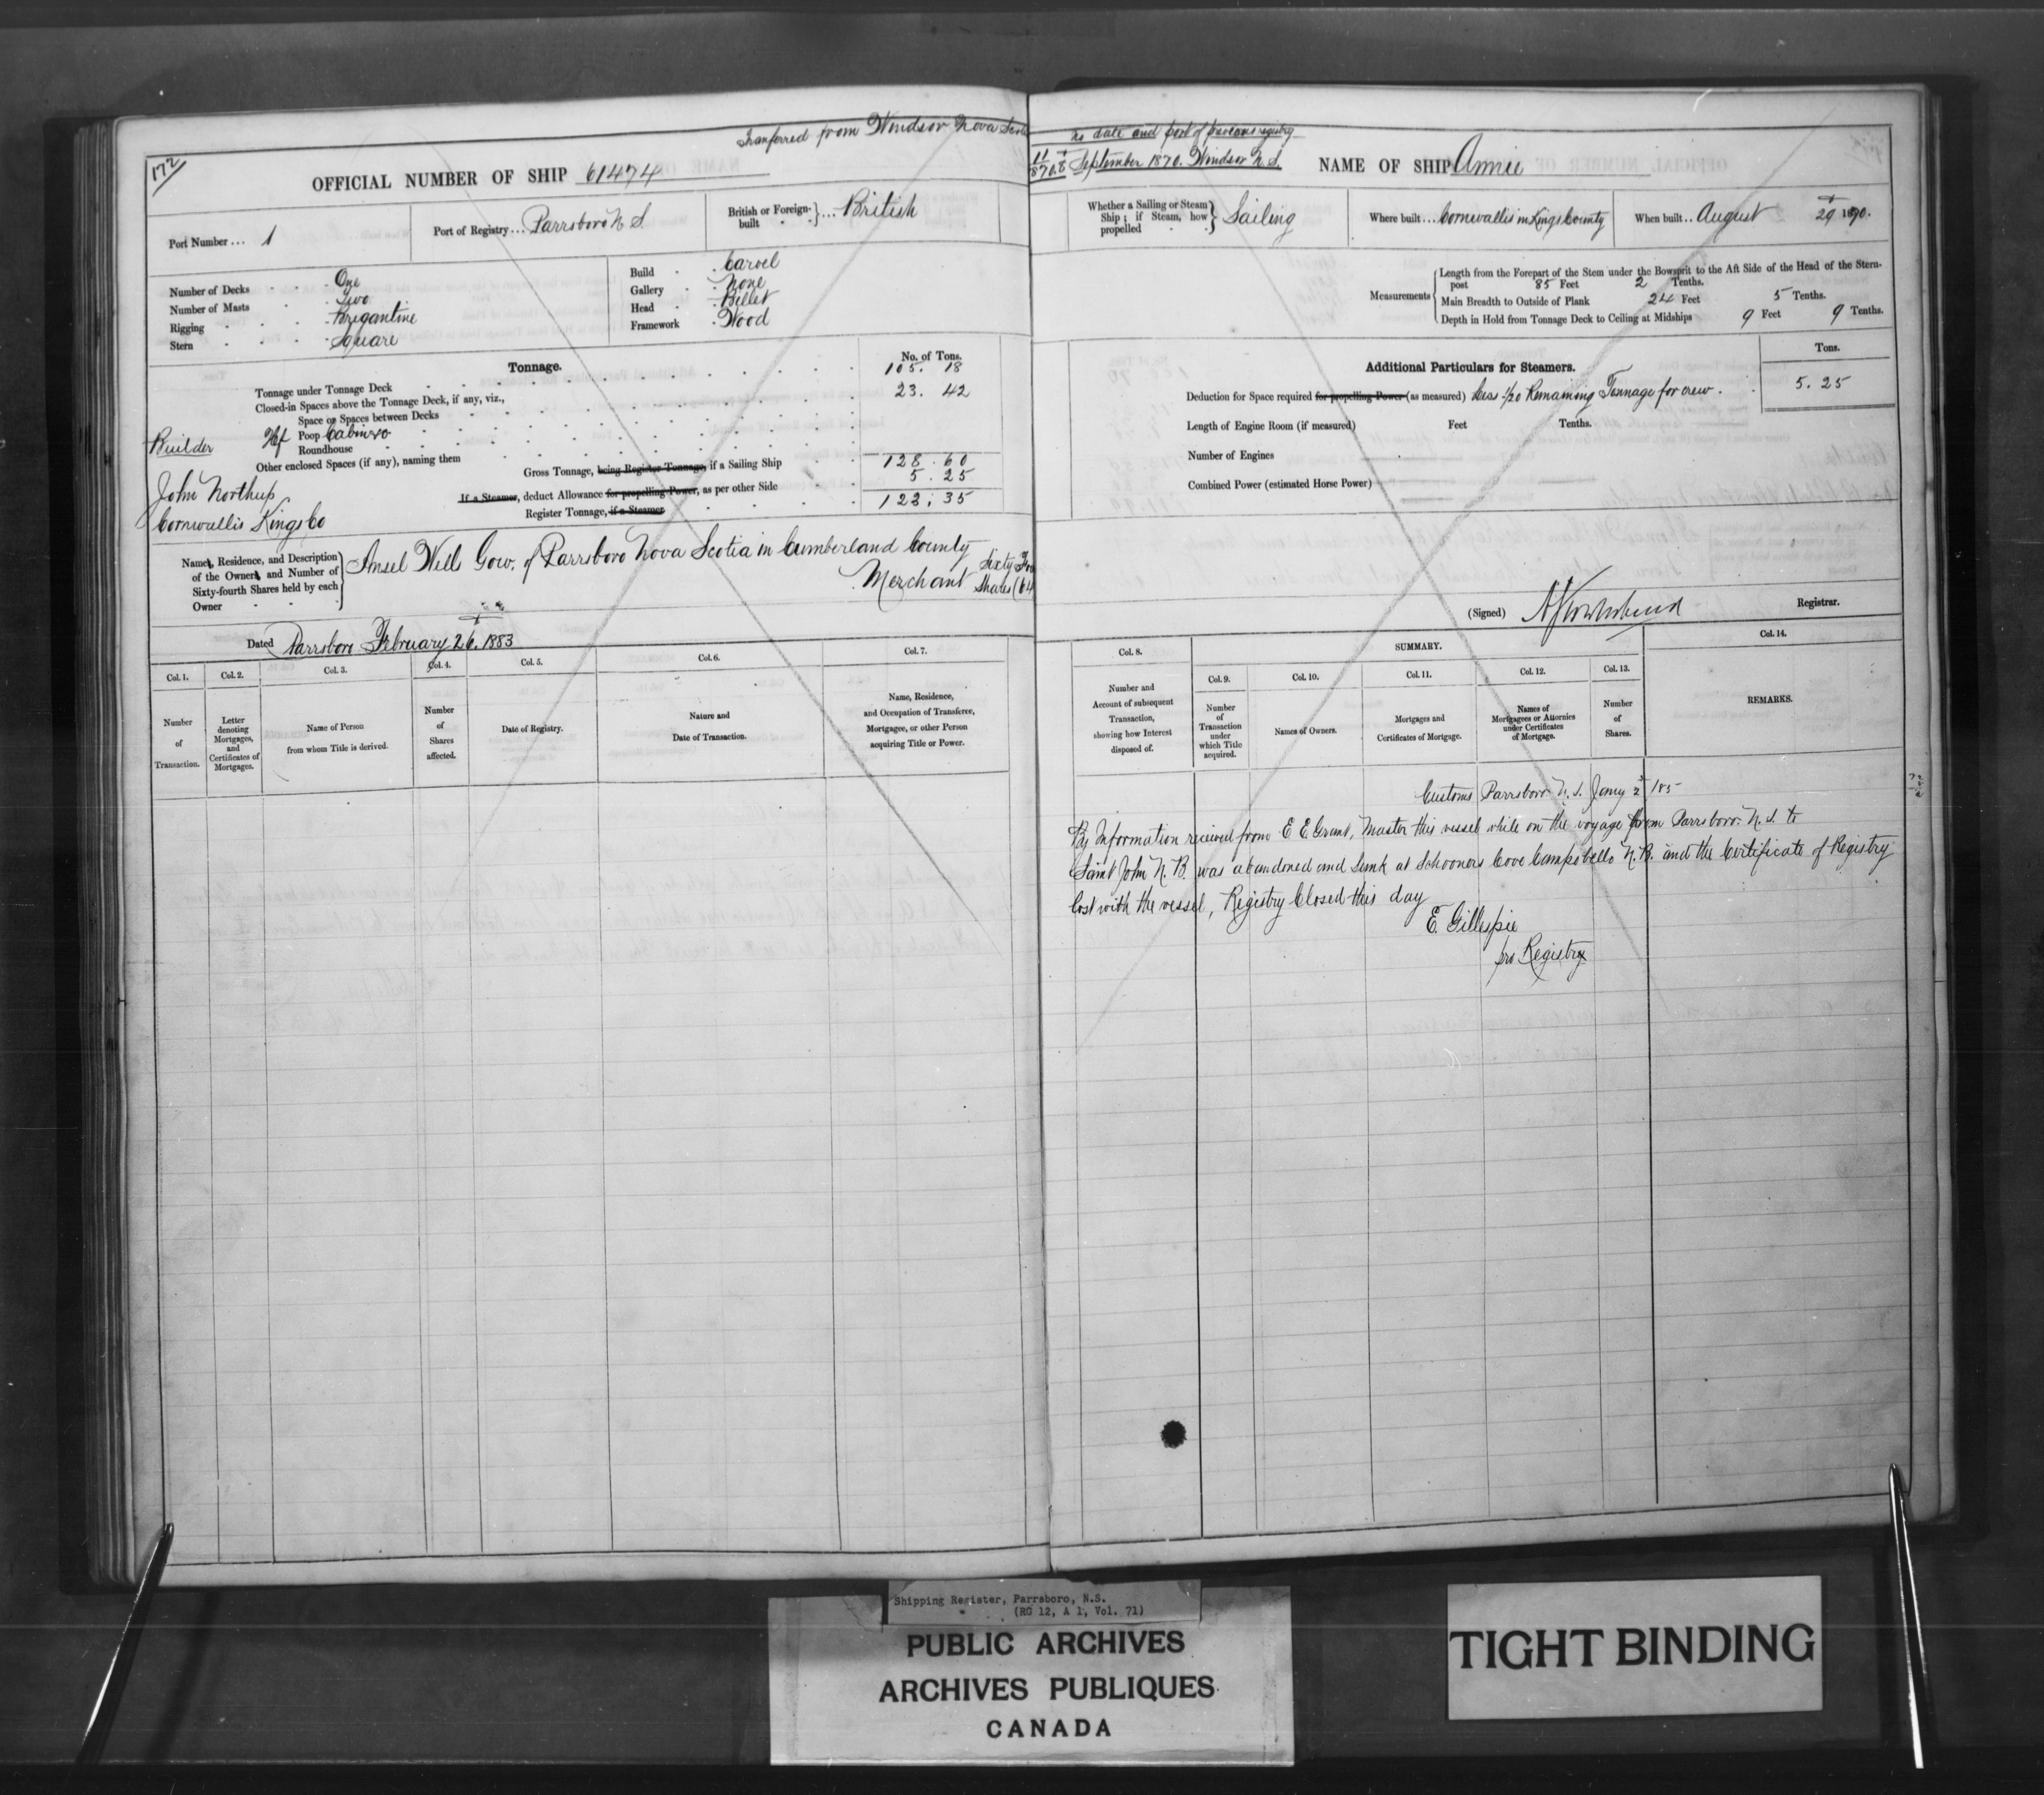 172
Tranferred from Windsor Nova Scotia
OFFICIAL NUMBER OF SHIP 61474
Port Number ... 1
Port of Registry ... Parrsboro N S.
British or Foreign-built } ... British
Number of Decks One
Number of Masts Two
Rigging Brigantine
Stern Square
Build Carvel
Gallery None
Head Billet
Framework Wood
Tonnage.
No. of Tons.
Tonnage under Tonnage Deck 105. 18
Closed-in Spaces above the Tonnage Deck, if any, viz., 23. 42
Space or Spaces between Decks
Hf Poop Cabin &c
Roundhouse
Other enclosed Spaces (if any), naming them
Gross Tonnage, being Register Tonnage, if a Sailing Ship 128. 60
If a Steamer, deduct Allowance for propelling Power, as per other Side 5. 25
Register Tonnage, if a Steamer 123. 35
Builder
John Northup
Cornwallis Kings Co
Names, Residence, and Description
of the Owners, and Number of
Sixty-fourth Shares held by each
Owner
Ansel Well Gow. of Parrsboro Nova Scotia in Cumberland County
Merchant Sixty Four
Shares (64
Dated Parrsboro February 26. 1883
Col. 1. Col. 2. Col. 3. Col. 4. Col. 5. Col. 6. Col. 7.
Number of Transaction.
Letter denoting Mortgages, and Certificates of Mortgages.
Name of Person from whom Title is derived.
Number of Shares affected.
Date of Registry.
Nature and Date of Transaction.
Name, Residence, and Occupation of Transferee, Mortgagee, or other Person acquiring Title or Power.
No date and port of previous registry
11
1870. 8 September 1870. Windsor N. S.
NAME OF SHIP Annie
Whether a Sailing or Steam Ship; if Steam, how propelled } Sailing
Where built ... Cornwallis in Kings County
When built .. August 29 1870.
Measurements
Length from the Forepart of the Stem under the Bowsprit to the Aft Side of the Head of the Stern-
post 85 Feet 2 Tenths.
Main Breadth to Outside of Plank 24 Feet 5 Tenths.
Depth in Hold from Tonnage Deck to Ceiling at Midships 9 Feet 9 Tenths.
Additional Particulars for Steamers.
Tons.
Deduction for Space required for propelling Power (as measured) Less 1/20 Remaining Tonnage for crew. 5. 25
Length of Engine Room (if measured) Feet Tenths.
Number of Engines
Combined Power (estimated Horse Power)
(Signed) A S Townshend Registrar.
Col. 8. SUMMARY. Col. 14.
Col. 9. Col. 10. Col. 11. Col. 12. Col. 13.
Number and Account of subsequent Transaction, showing how Interest disposed of.
Number of Transaction under which Title acquired.
Names of Owners.
Mortgages and Certificates of Mortgage.
Names of Mortgagees or Attornies under Certificates of Mortgage.
Number of Shares.
REMARKS.
Customs Parrsboro N. S. Jany 2 185
By Information received from E E Grant, Master this vessel while on the voyage from Parrsboro N. S. to
Saint John N. B. was abandoned and sunk at Schooners Cove Campobello N. B. and the Certificate of Registry
lost with the vessel, Registry Closed this day
E. Gillespie
pro Registry
Shipping Register, Parrsboro, N.S.
(RG 12, A 1, Vol. 71)
PUBLIC ARCHIVES
ARCHIVES PUBLIQUES
CANADA
TIGHT BINDING